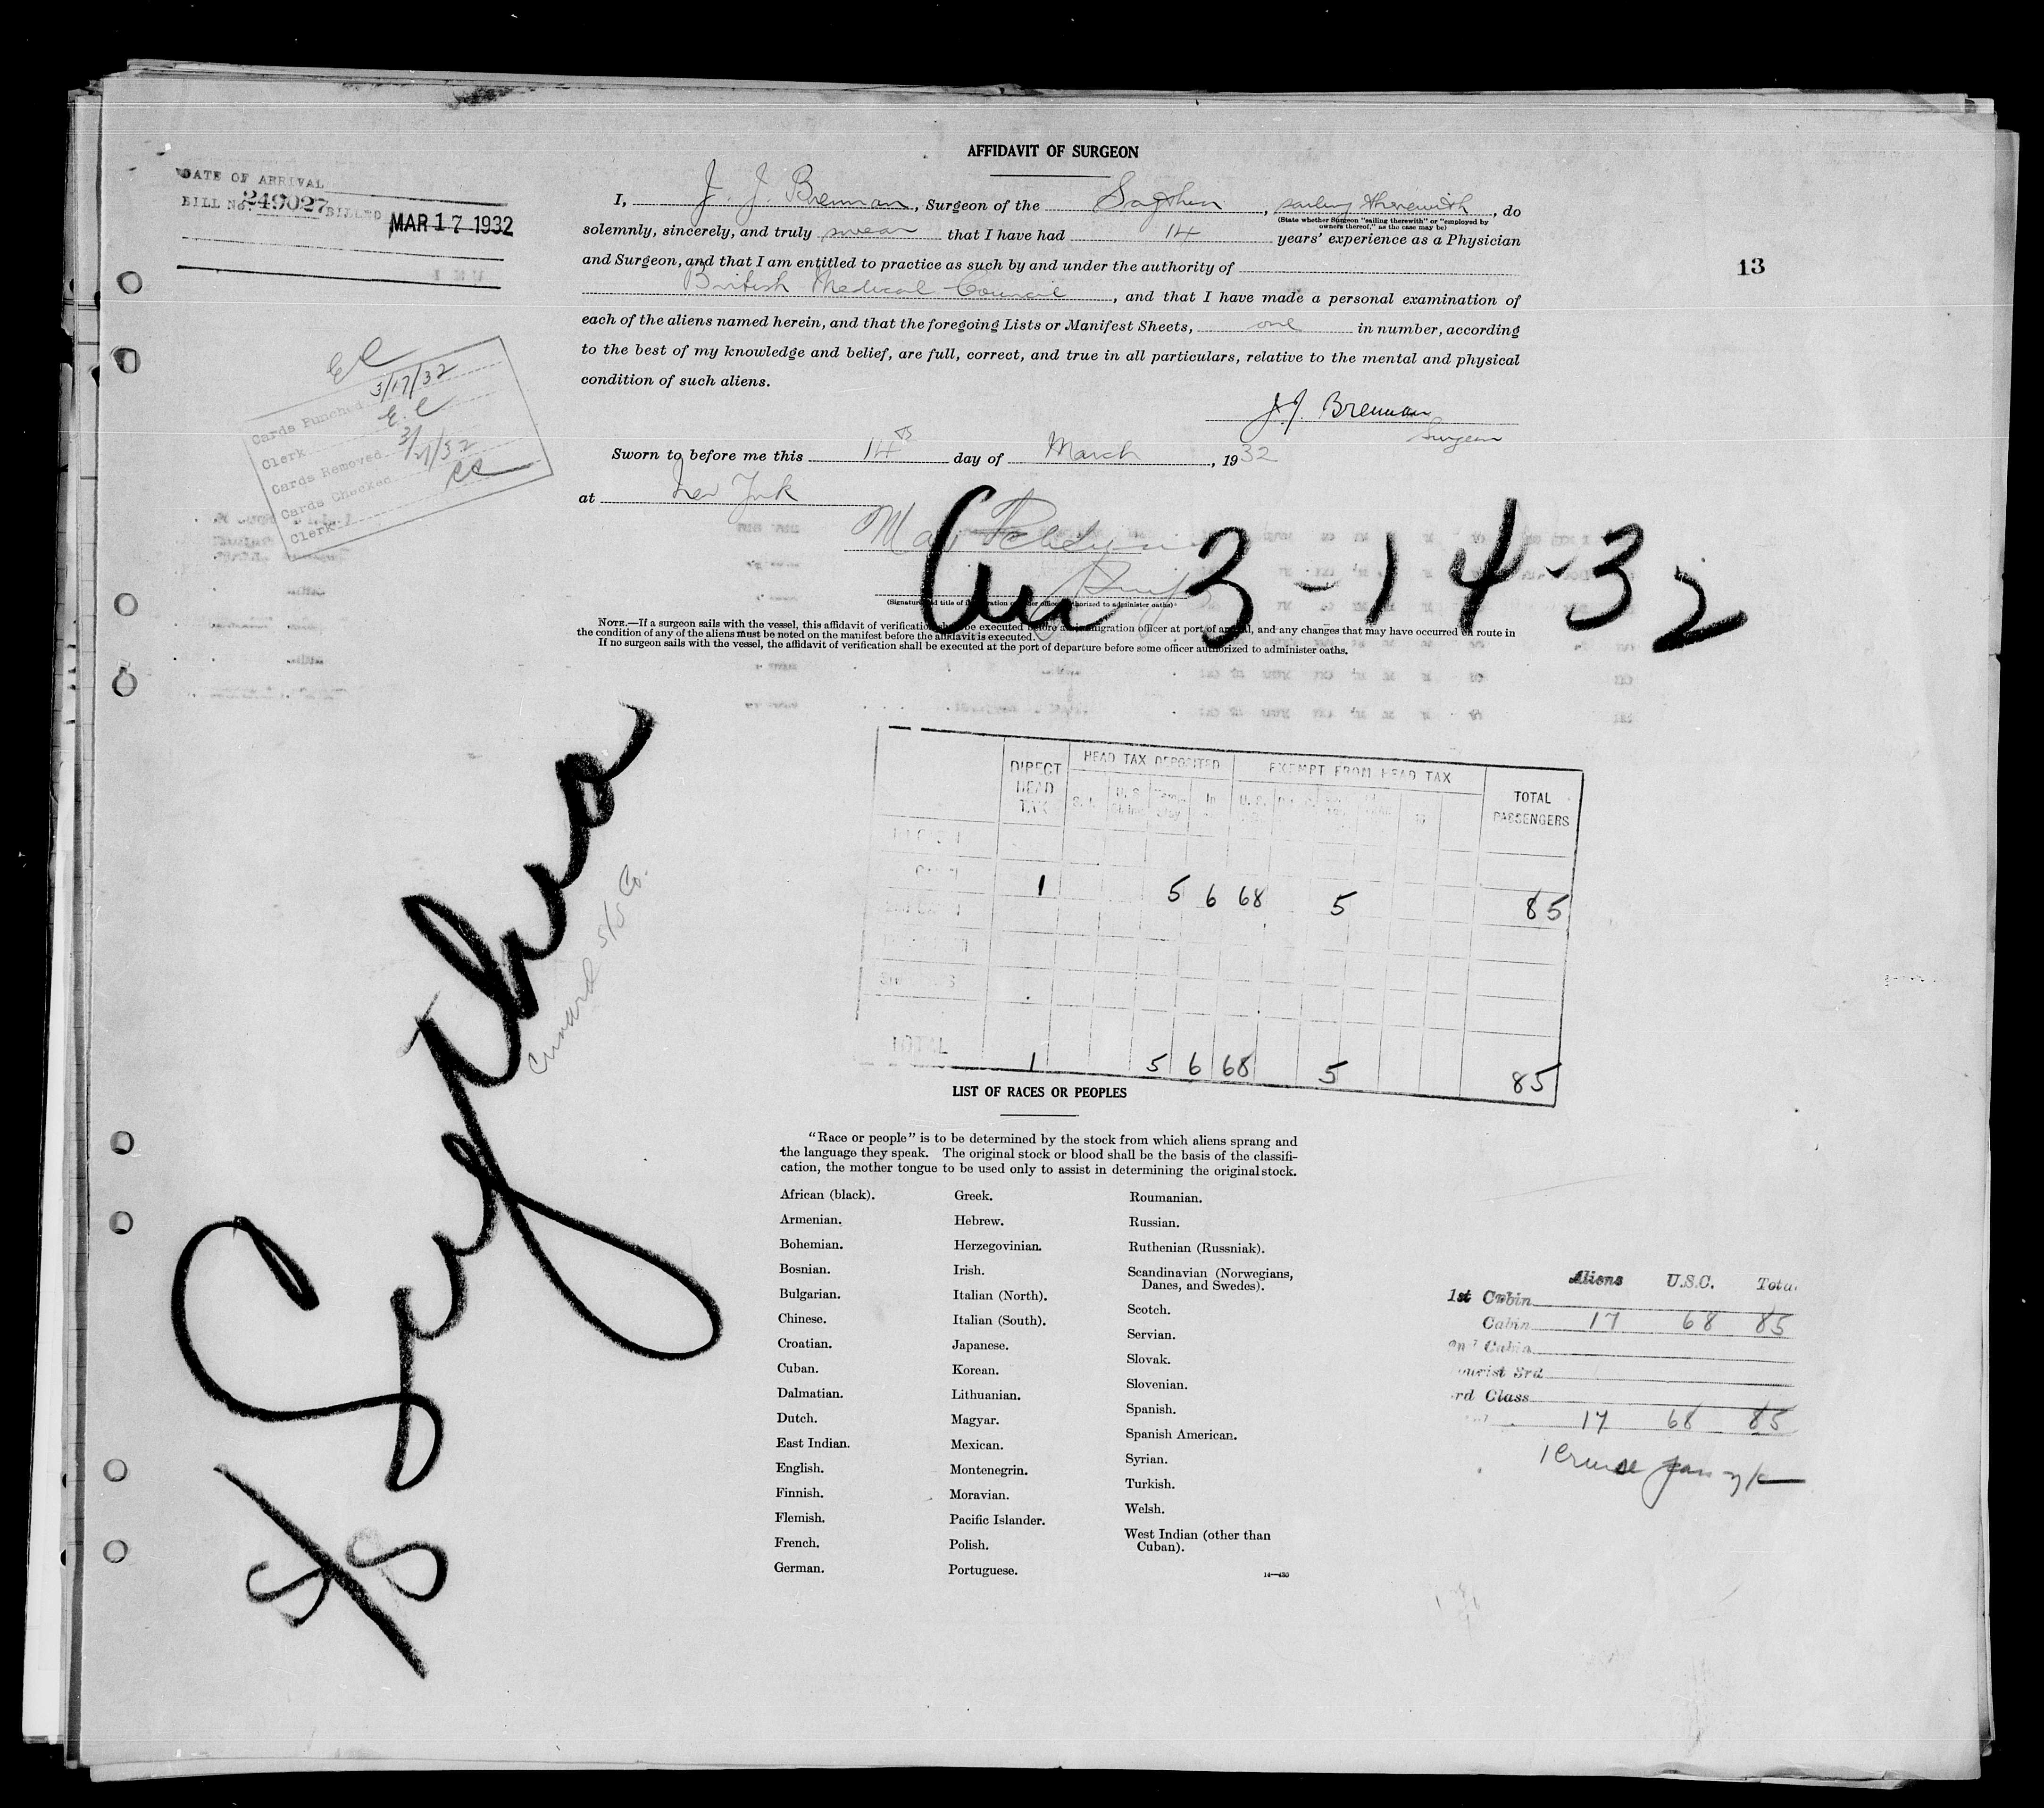 AFFIDAVIT OF SURGEON
DATE OF ARRIVAL
BILL No. 249027 BILLED MAR 17 1932
I, J. J. Brennan, Surgeon of the Scythia, sailing therewith, do
(State whether Surgeon "sailing therewith" or "employed by
owners thereof," as the case may be)
solemnly, sincerely, and truly swear that I have had 14 years' experience as a Physician
and Surgeon, and that I am entitled to practice as such by and under the authority of
British Medical Council, and that I have made a personal examination of
each of the aliens named herein, and that the foregoing Lists or Manifest Sheets, one in number, according
to the best of my knowledge and belief, are full, correct, and true in all particulars, relative to the mental and physical
condition of such aliens.
J. J. Brennan
Surgeon
Sworn to before me this 14th day of March, 1932
at New York
13
EC
Cards Punched 3/17/32
Clerk E.C
Cards Removed 3/21/32
Cards Checked CC
Clerk
3-14-32
(Signature and title of immigration officer authorized to administer oaths)
NOTE.—If a surgeon sails with the vessel, this affidavit of verification shall be executed before an immigration officer at port of arrival, and any changes that may have occurred en route in
the condition of any of the aliens must be noted on the manifest before the affidavit is executed.
If no surgeon sails with the vessel, the affidavit of verification shall be executed at the port of departure before some officer authorized to administer oaths.
S/S Scythia
Cunard S/S Co.
DIRECT HEAD TAX
HEAD TAX DEPOSITED
EXEMPT FROM HEAD TAX
TOTAL PASSENGERS
1 5 6 68 5 85
TOTAL 1 5 6 68 5 85
LIST OF RACES OR PEOPLES
"Race or people" is to be determined by the stock from which aliens sprang and
the language they speak. The original stock or blood shall be the basis of the classifi-
cation, the mother tongue to be used only to assist in determining the original stock.
African (black).
Armenian.
Bohemian.
Bosnian.
Bulgarian.
Chinese.
Croatian.
Cuban.
Dalmatian.
Dutch.
East Indian.
English.
Finnish.
Flemish.
French.
German.
Greek.
Hebrew.
Herzegovinian.
Irish.
Italian (North).
Italian (South).
Japanese.
Korean.
Lithuanian.
Magyar.
Mexican.
Montenegrin.
Moravian.
Pacific Islander.
Polish.
Portuguese.
Roumanian.
Russian.
Ruthenian (Russniak).
Scandinavian (Norwegians,
Danes, and Swedes).
Scotch.
Servian.
Slovak.
Slovenian.
Spanish.
Spanish American.
Syrian.
Turkish.
Welsh.
West Indian (other than
Cuban).
14—430
Aliens U.S.C. Total
1st Cabin
Cabin 17 68 85
2nd Cabin
Tourist 3rd
3rd Class
17 68 85
1 Cruise